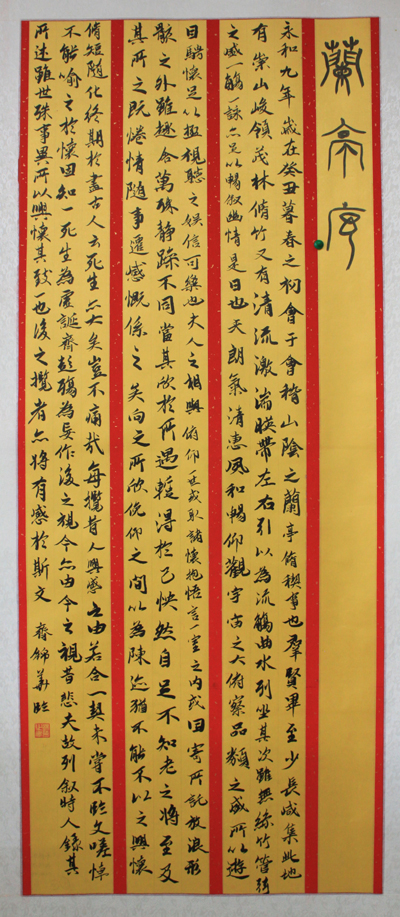 蘭亭序
永和九年歲在癸丑暮春之初會于會稽山陰之蘭亭脩稧事也羣賢畢至少長咸集此地
有崇山峻領茂林脩竹又有清流激湍暎帶左右引以為流觴曲水列坐其次雖無絲竹管弦
之盛一觴一詠亦足以暢叙幽情是日也天朗氣清惠風和暢仰觀宇宙之大俯察品類之盛所以遊
目騁懷足以極視聽之娛信可樂也夫人之相與俯仰一世或取諸懷抱悟言一室之內或因寄所託放浪形
骸之外雖趣舍萬殊静躁不同當其欣於所遇蹔得於己怏然自足不知老之將至及
其所之既惓情隨事遷感慨係之矣向之所欣俛仰之間以為陳迹猶不能不以之興懷
脩短隨化終期於盡古人云死生亦大矣豈不痛哉每攬昔人興感之由若合一契未嘗不臨文嗟悼
不能喻之於懷固知一死生為虛誕齊彭殤為妄作後之視今亦由今之視昔悲夫故列叙時人錄其
所述雖世殊事異所以興懷其致一也後之攬者亦將有感於斯文 齊錦華臨